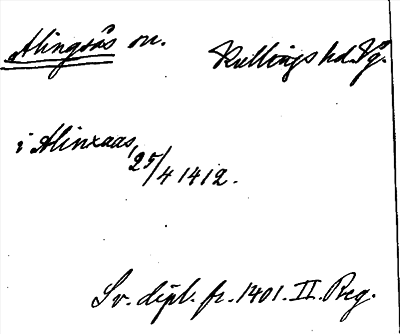 Alingsås on. Kullings hd. Vg.
i Alinxaas, 25/4 1412.
Sv. dipl. fr. 1401. II. Reg.